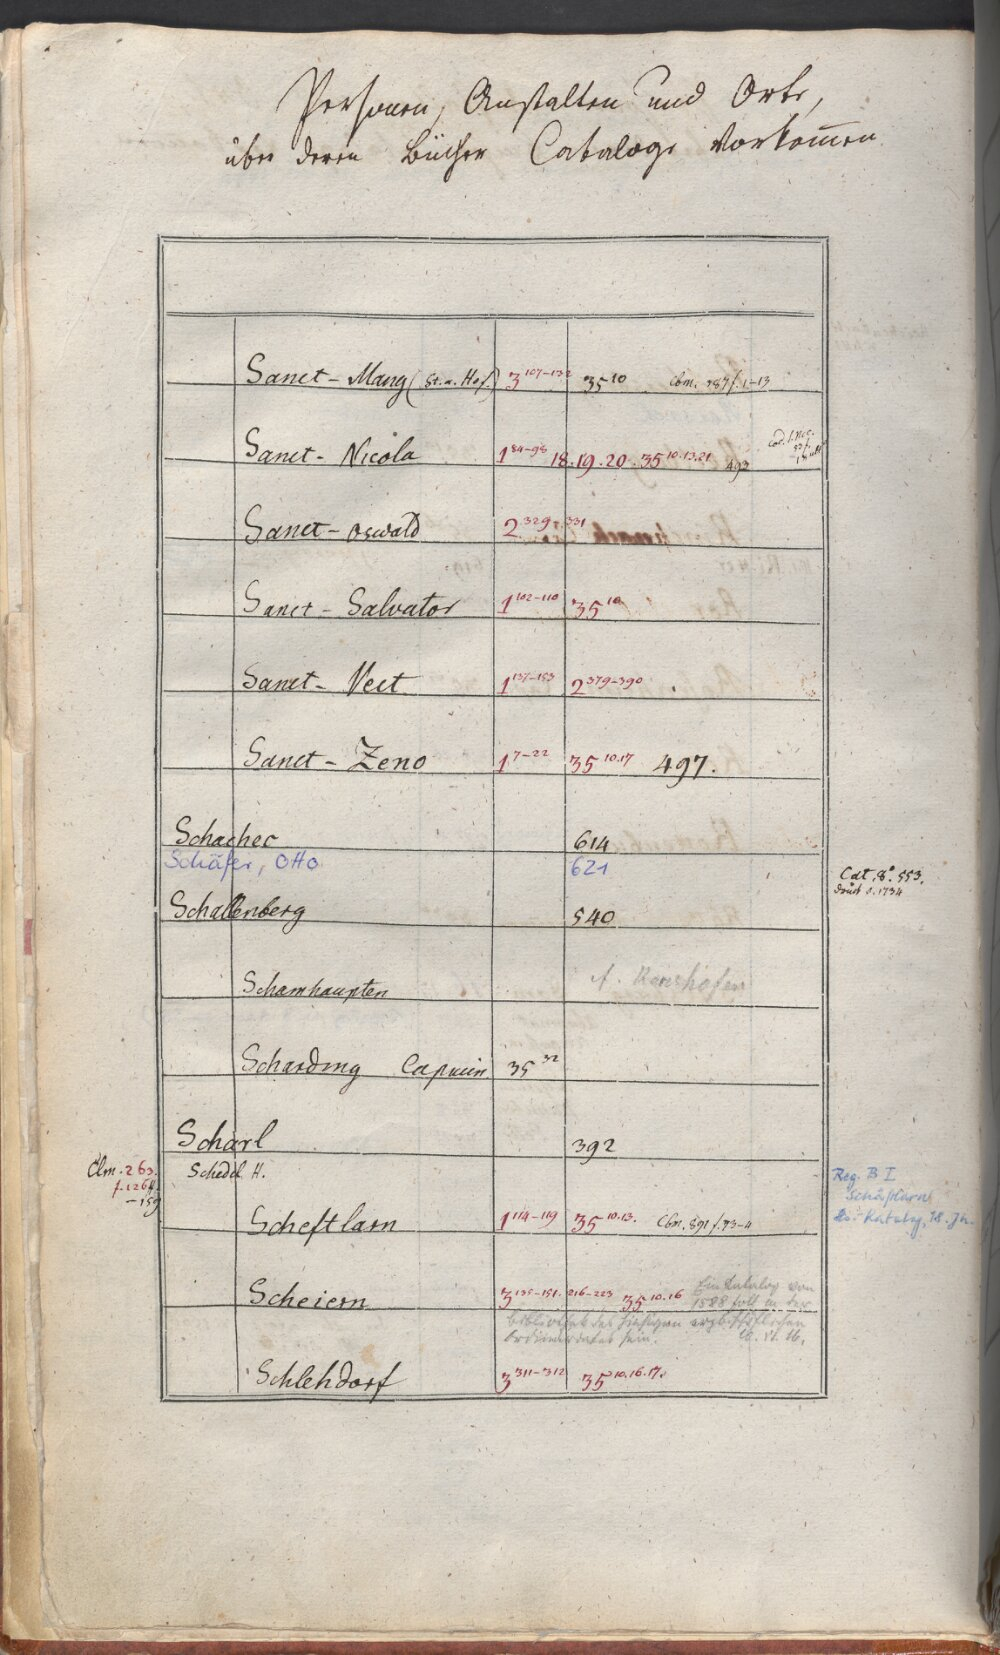 Personen, Anstalten und Orte,
über deren Bücher Cataloge vorkom̄en
Sanct - Mang (St. a. Hof.) 3 107-132 35 10 Cbm. 387 f. 1-13
Sanct - Nicola 1 84-98 18. 19. 20. 35 10.13.21 492
Sanct - Oswald 2 329-331
Sanct - Salvator 1 102-110 35 10
Sanct - Veit 1 137-153 2 379-390
Sanct - Zeno 1 7-22 35 10.17 497.
Schacher 614
Schäfer, Otto 621
Cat. 8°. 553.
Druck v. 1734
Schallenberg 540
Schamhaupten s. Ranshofen
Schärding Capucin 35 32
Schärl 392
Clm. 263. Schedel H.
f. 126
-159
Reg. B I
Schäftlarn
Bibl.-Katalog, 18. Jh.
Scheftlarn 1 114-119 35 10.13. Cbm. 891 f. 73-4
Scheiern 3 135-151. 216-223 35 10.16 Ein Catalog von
1588 soll in der
Bibliothek des hiesigen erzbischöflichen
Ordinariates sein.
Schlehdorf 3 311-312 35 10.16.17.